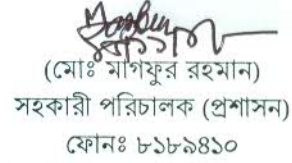 (মোঃ মাগফুর রহমান)
সহকারী পরিচালক (প্রশাসন)
ফোনঃ ৮১৮৯৪১০